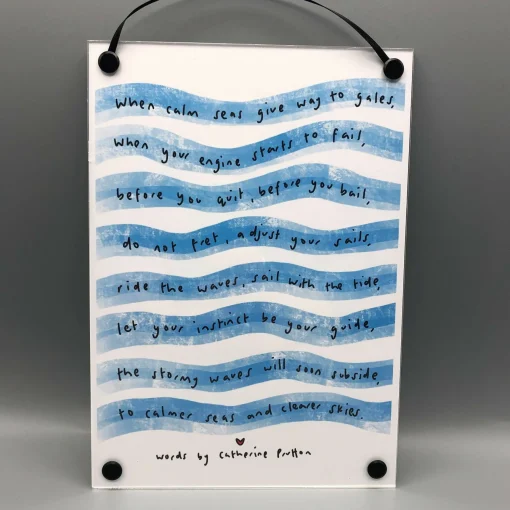 when calm seas give way to gales,
when your engine starts to fail,
before you quit, before you bail,
do not fret, adjust your sails,
ride the waves, sail with the tide,
let your instinct be your guide,
the stormy waves will soon subside,
to calmer seas and clearer skies.
words by Catherine Prutton